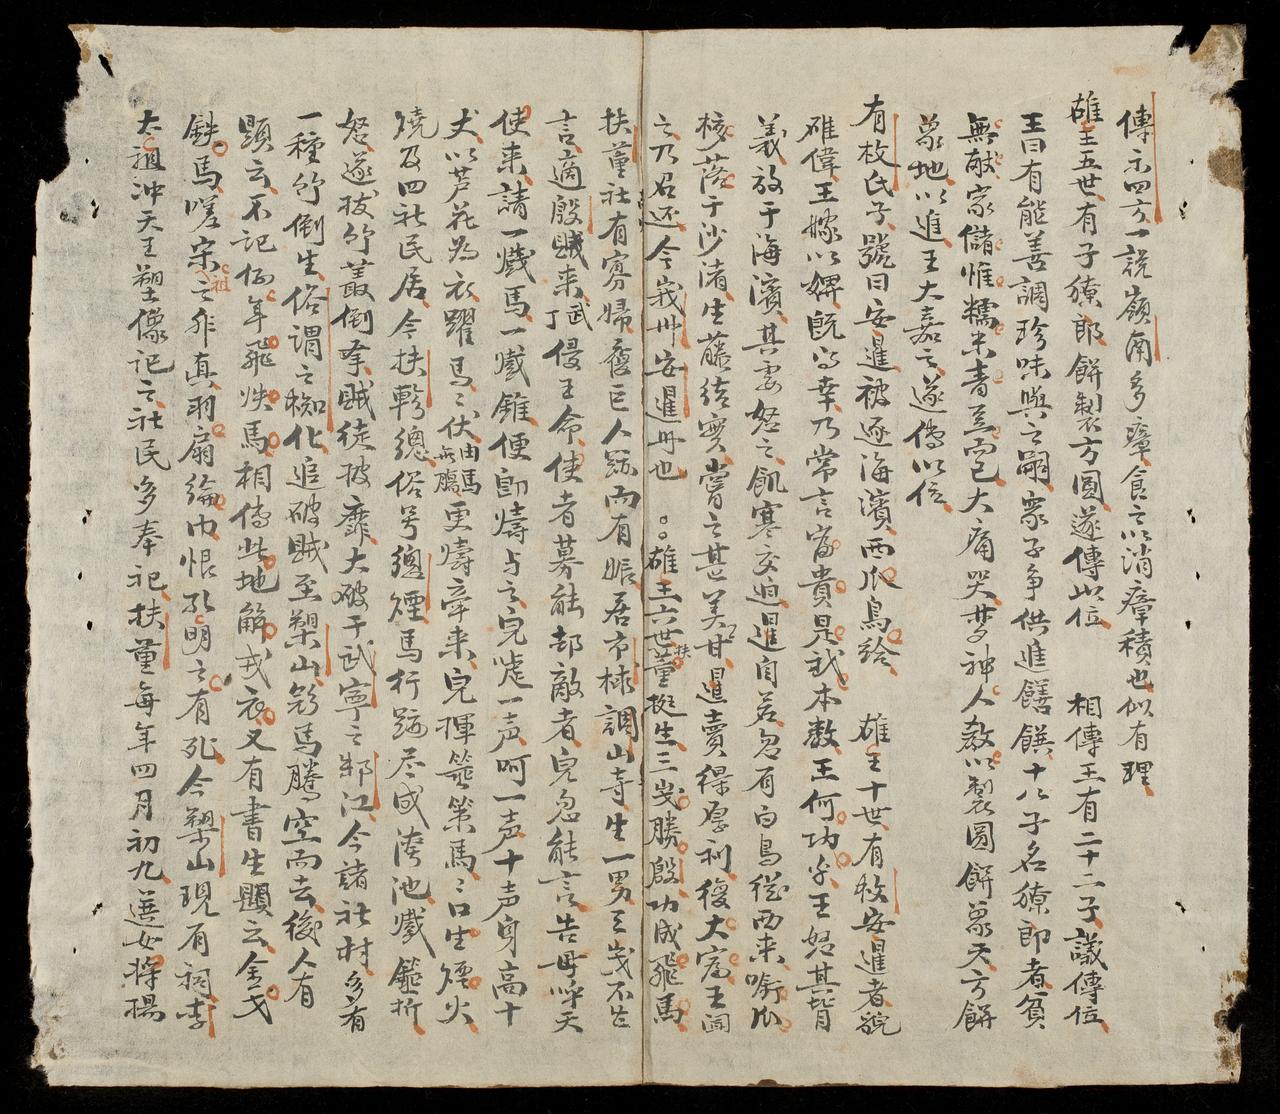 傳示四方一說嶺南多瘴食之以消瘴積也似有理
雄王五世有子獠郎餅製方圓遂傳此位 相傳王有二十二子議傳位
王曰有能善調珍味與之嗣衆子争供進饍饌十八子名獠郎者貧
無献家儲惟糯米青豆而已大痛哭夢神人教以製圓餅象天方餅
象地以進王大嘉之遂傳以位
有枚氏子號曰安暹被逐海濱西瓜鳥給 雄王十世有枚安暹者貌
碓偉王嫁以婢既而幸乃常言富貴是我本数王何功乎王怒其背
義放于海濱其妻怒之飢寒交迫暹自若忽有白鳥從西来啣瓜
核落于沙渚生藤結實嘗之甚美甘暹賣得厚利復大富王聞
之乃召还今峩州安暹冊也 。。雄王六世扶董挺生三歲勝殷功成飛馬
扶董社有寡婦舊巨人跡而有娠居市棣調山寺生一男三歲不其
言適殷賊来武丁侵王命使者募能却敵者皃忽能言告母呼天
使来請一鐡馬一鐡錐便即鑄与之皃嘘一声呵一声十声身高十
丈以芦花為衣躍馬馬伏由馬無膓更鑄牽来皃揮釜策馬馬口生煙火
燒及四社民居今扶軫總俗号總煙馬行跡尽成湾池鐡錐折
怒遂拔竹叢倒拿賊徒披靡大破于武寧之邾江今諸社村多有
一種竹倒生俗謂之椥化追破賊至槊山釣馬騰空而去後人有
題云不記何年飛铁馬相傳此地解戎衣又有書生題云金戈
鉄馬嗟宋祖之非真羽扇綸巾恨孔明之有死今槊山現有祠李
太祖冲天王塑像記之社民多奉祀扶董每年四月初九選女將揚